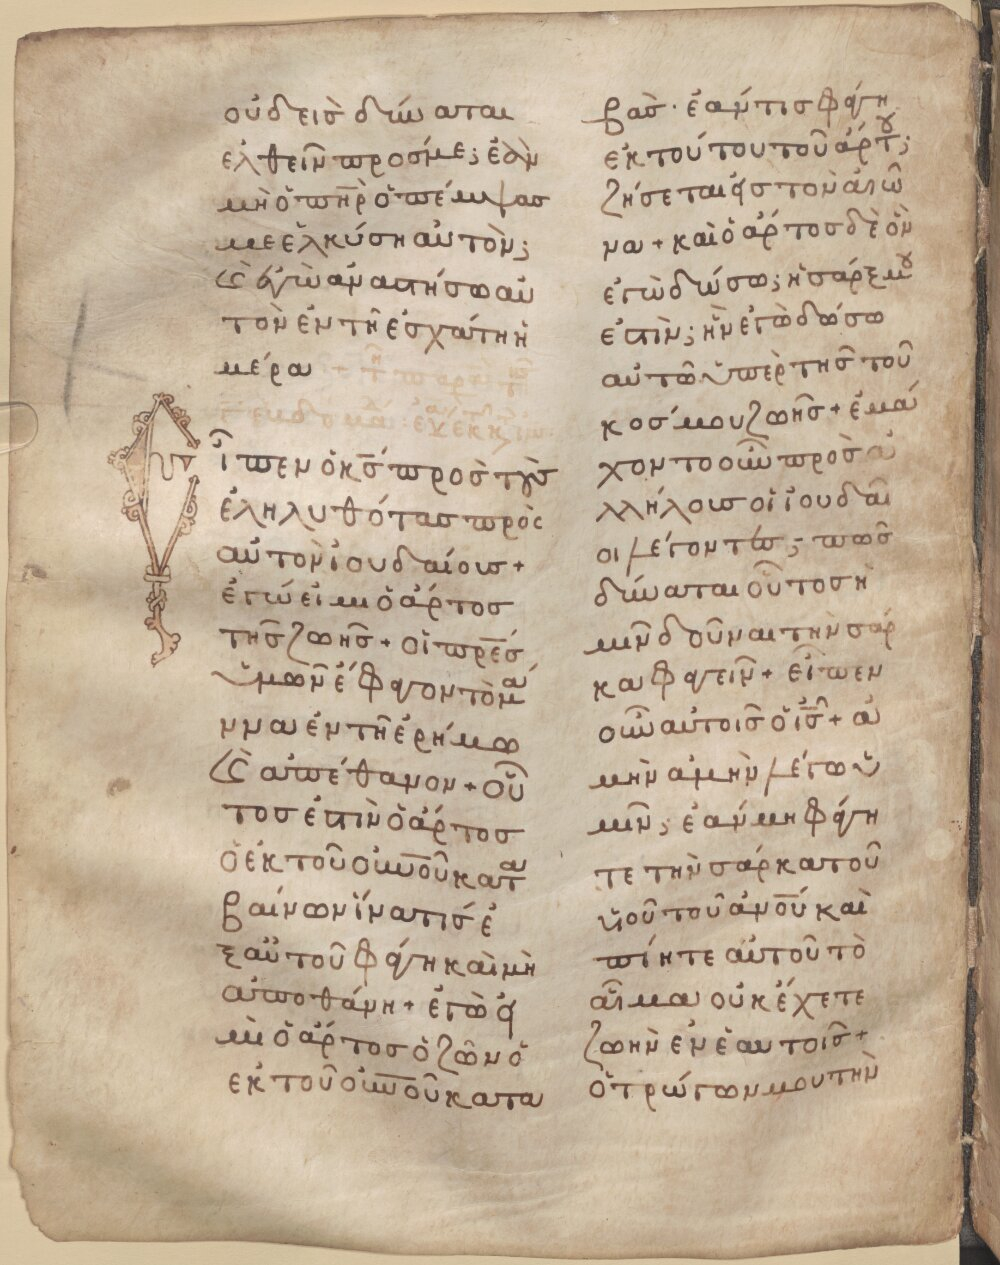 οὐδεὶς δύναται
ἐλθεῖν πρός με; ἐὰν
μὴ ὁ π̅η̅ρ̅ ὁ πέμψας
με ἑλκύση αὐτὸν;
ϗ ἐγὼ ἀναστήσω αὐ
τὸν ἐν τῆ ἐσχάτη ἡ
μέρα
Εἶπεν ὁ κ̅ς̅ πρὸς τοὺς
ἐληλυθότας πρὸς
αὐτὸν ἰουδαίους +
ἐγώ εἰμι ὁ ἄρτος
τῆς ζωῆς + οἱ π̅ρ̅ε̅ς̅
ὑμῶν ἔφαγον τὸ μά
ννα ἐν τῆ ἐρήμω
ϗ ἀπέθανον + οὗ
τός ἐστὶν ὁ ἄρτος
ὁ ἐκ τοῦ ο̅υ̅ν̅ο̅ῦ̅ κατα
βαίνων ἵνα τις ἐ
ξ αὐτοῦ φάγη καὶ μὴ
ἀποθάνη + ἐγὼ εἰ
μὶ ὁ ἄρτος ὁ ζῶν ὁ
ἐκ τοῦ ο̅υ̅ν̅ο̅ῦ̅ κατα
βάς · ἐάν τις φάγη
ἐκ τούτου τοῦ ἄρτου;
ζήσεται εἰς τὸν αἰῶ
να + καὶ ὁ ἄρτος δὲ ὃν
ἐγὼ δώσω; ἡ σάρξ μου
ἐστὶν; ἣν ἐγὼ δώσω
αὐτῶ ὑπὲρ τῆς τοῦ
κόσμου ζωῆς + ἐμά
χοντο οὖν πρὸς ἀ
λλήλους οἱ ἰουδαῖ
οι λέγοντες; πῶς
δύναται οὗτος ἡ
μῖν δοῦναι τὴν σάρ
κα φαγεῖν + εἶπεν
οὖν αὐτοῖς ὁ ι̅ς̅ + ἀ
μὴν ἀμὴν λέγω ὑ
μῖν; ἐὰν μὴ φάγη
τε τὴν σάρκα τοῦ
υἱοῦ τοῦ α̅ν̅ο̅υ̅ καὶ
πίητε αὐτοῦ τὸ
αἷμα οὐκ ἔχετε
ζωὴν ἐν ἑαυτοῖς +
ὁ τρώγων μου τὴν